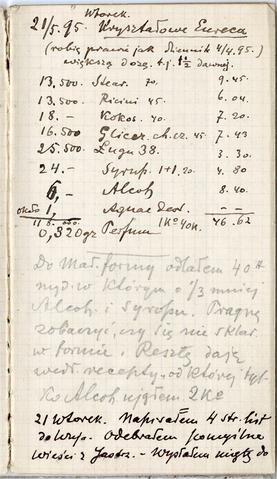 Wtorek.
21/5.95. Kryształowe Eureca
(robię prawie jak dziennik 4/4.95.)
większą dozę. t.j. 1½ dawnej.
13.500. Stear. 70. 9.45
13.500 Ricini 45. 6.04.
18.— Kokos. 40. 7.20
16.500 Glicer. ch. cz. 45. 7.43
25.500 Ługu 38. 3.30
24.— Syrup. 1+1.20 4.80
6,— Alcoh 8.40.
około 1, Aquae Dest. — —
46.62
0,320 gr Perfum 1Ko 40K.
Do Mał. formy odlałem 40 #
myd. w którym o 1/3 mniej
Alcoh. i Syropu. Pragnę
zobaczyć, czy się nie
w formie. Resztę daję
wedł. recepty, od której tyl-
ko Alcoh ująłem 2Ko
21 Wtorek. Napisałem 4 str. list
do Wyp. Odebrałem pomyślne
wieści z Jastrz. — Wysłałem do